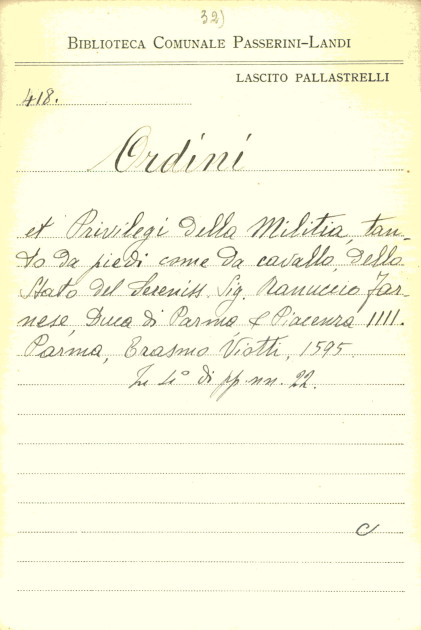 32)
BIBLIOTECA COMUNALE PASSERINI-LANDI
LASCITO PALLASTRELLI
418.
Ordini
et Privilegi della Militia, tan-
to da piedi come da cavallo, dello
Stato del Sereniss. Sig. Ranuccio Far-
nese, Duca di Parma, & Piacenza IIII.
Parma, Erasmo Viotti, 1595.
In 4° di pp. nn. 22.